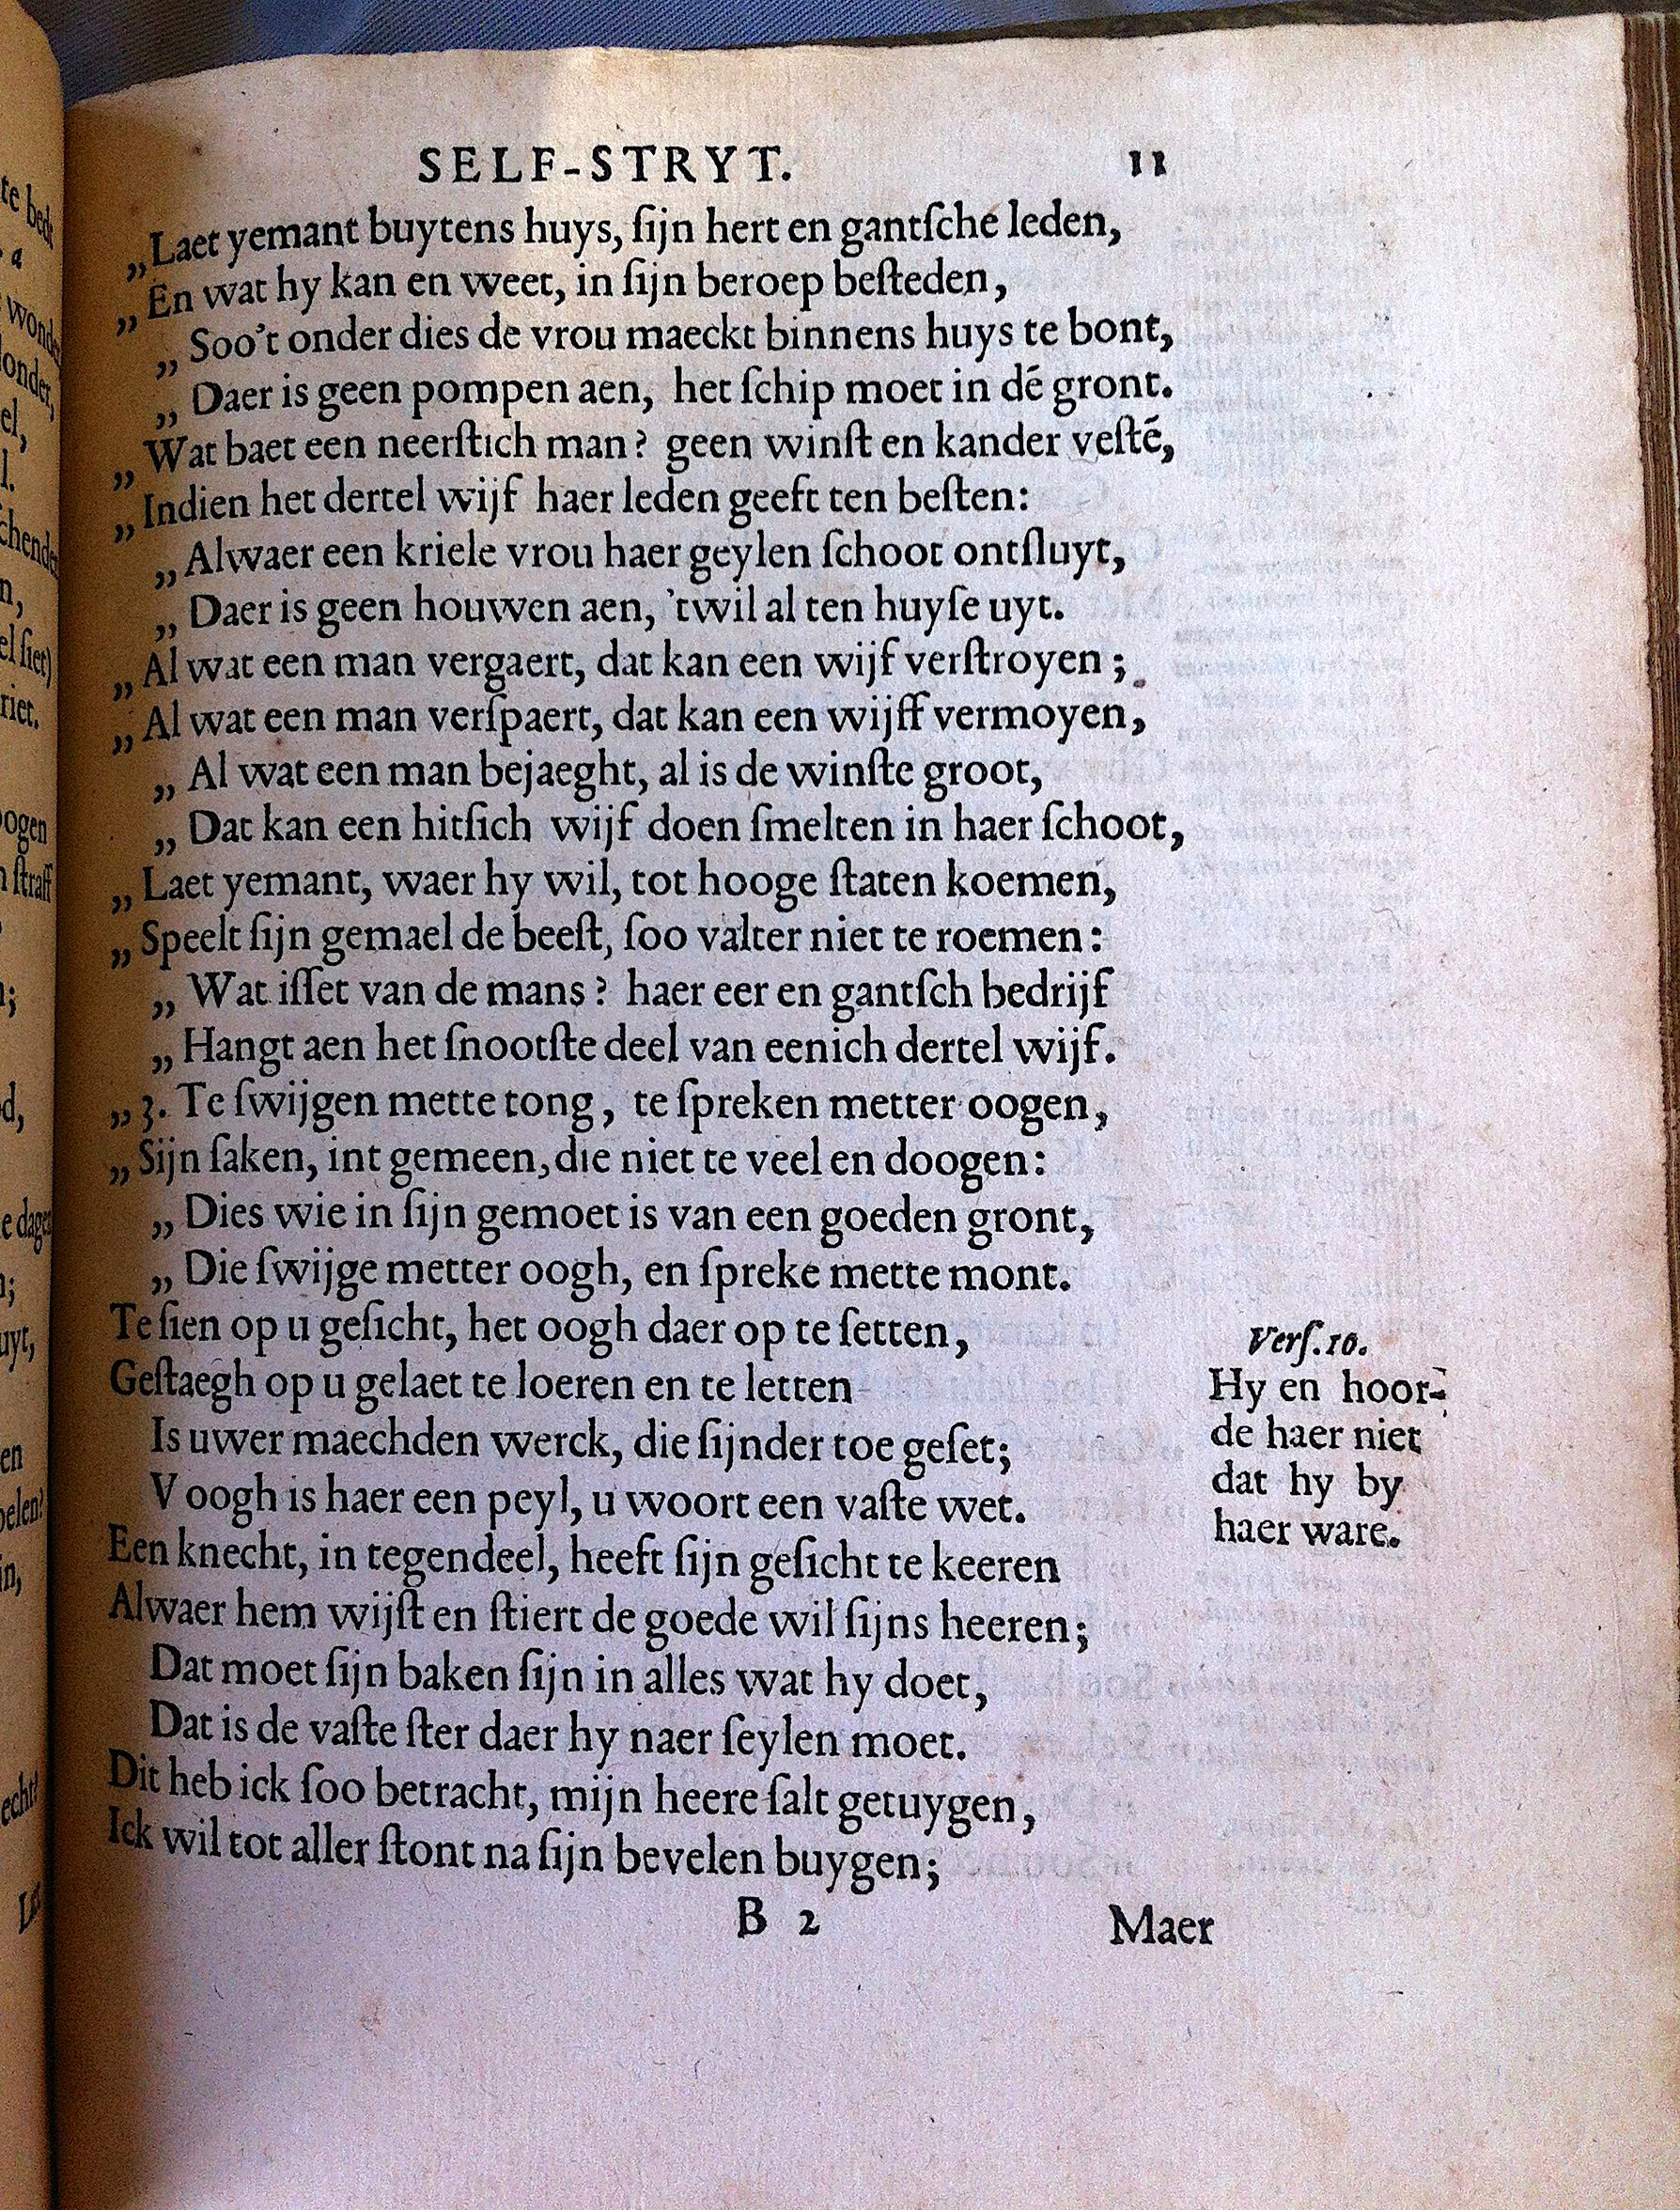 SELF-STRYT. 11
„Laet yemant buytens huys, ſijn hert en gantſche leden,
„En wat hy kan en weet, in ſijn beroep beſteden,
„Soo't onder dies de vrou maeckt binnens huys te bont,
„Daer is geen pompen aen, het ſchip moet in dé gront.
„Wat baet een neerſtich man? geen winſt en kander veſtẽ,
„Indien het dertel wijf haer leden geeft ten beſten:
„Alwaer een kriele vrou haer geylen ſchoot ontſluyt,
„Daer is geen houwen aen, 'twil al ten huyſe uyt.
„Al wat een man vergaert, dat kan een wijf verſtroyen;
„Al wat een man verſpaert, dat kan een wijff vermoyen,
„Al wat een man bejaeght, al is de winſte groot,
„Dat kan een hitſich wijf doen ſmelten in haer ſchoot,
„Laet yemant, waer hy wil, tot hooge ſtaten koemen,
„Speelt ſijn gemael de beeſt, ſoo valter niet te roemen:
„Wat iſſet van de mans? haer eer en gantſch bedrijf
„Hangt aen het ſnootſte deel van eenich dertel wijf.
„3. Te ſwijgen mette tong, te ſpreken metter oogen,
„Sijn ſaken, int gemeen, die niet te veel en doogen:
„Dies wie in ſijn gemoet is van een goeden gront,
„Die ſwijge metter oogh, en ſpreke mette mont.
Te ſien op u geſicht, het oogh daer op te ſetten,
Geſtaegh op u gelaet te loeren en te letten
Is uwer maechden werck, die ſijnder toe geſet;
V oogh is haer een peyl, u woort een vaſte wet.
Een knecht, in tegendeel, heeft ſijn geſicht te keeren
Alwaer hem wijſt en ſtiert de goede wil ſijns heeren;
Dat moet ſijn baken ſijn in alles wat hy doet,
Dat is de vaſte ſter daer hy naer ſeylen moet.
Dit heb ick ſoo betracht, mijn heere ſalt getuygen,
Ick wil tot aller ſtont na ſijn bevelen buygen;
Verſ.10.
Hy en hoor-
de haer niet
dat hy by
haer ware.
B 2 Maer